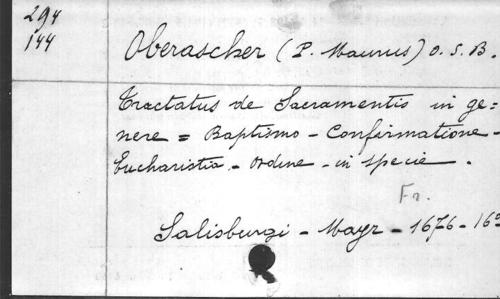 294
144
Oberascher (P. Maurus) O. S. B.
Tractatus de Sacramentis in ge=
nere = Baptismo - Confirmatione -
Eucharistia - Ordine - in specie.
Fr.
Salisburgi - Mayr - 1676 - 16º